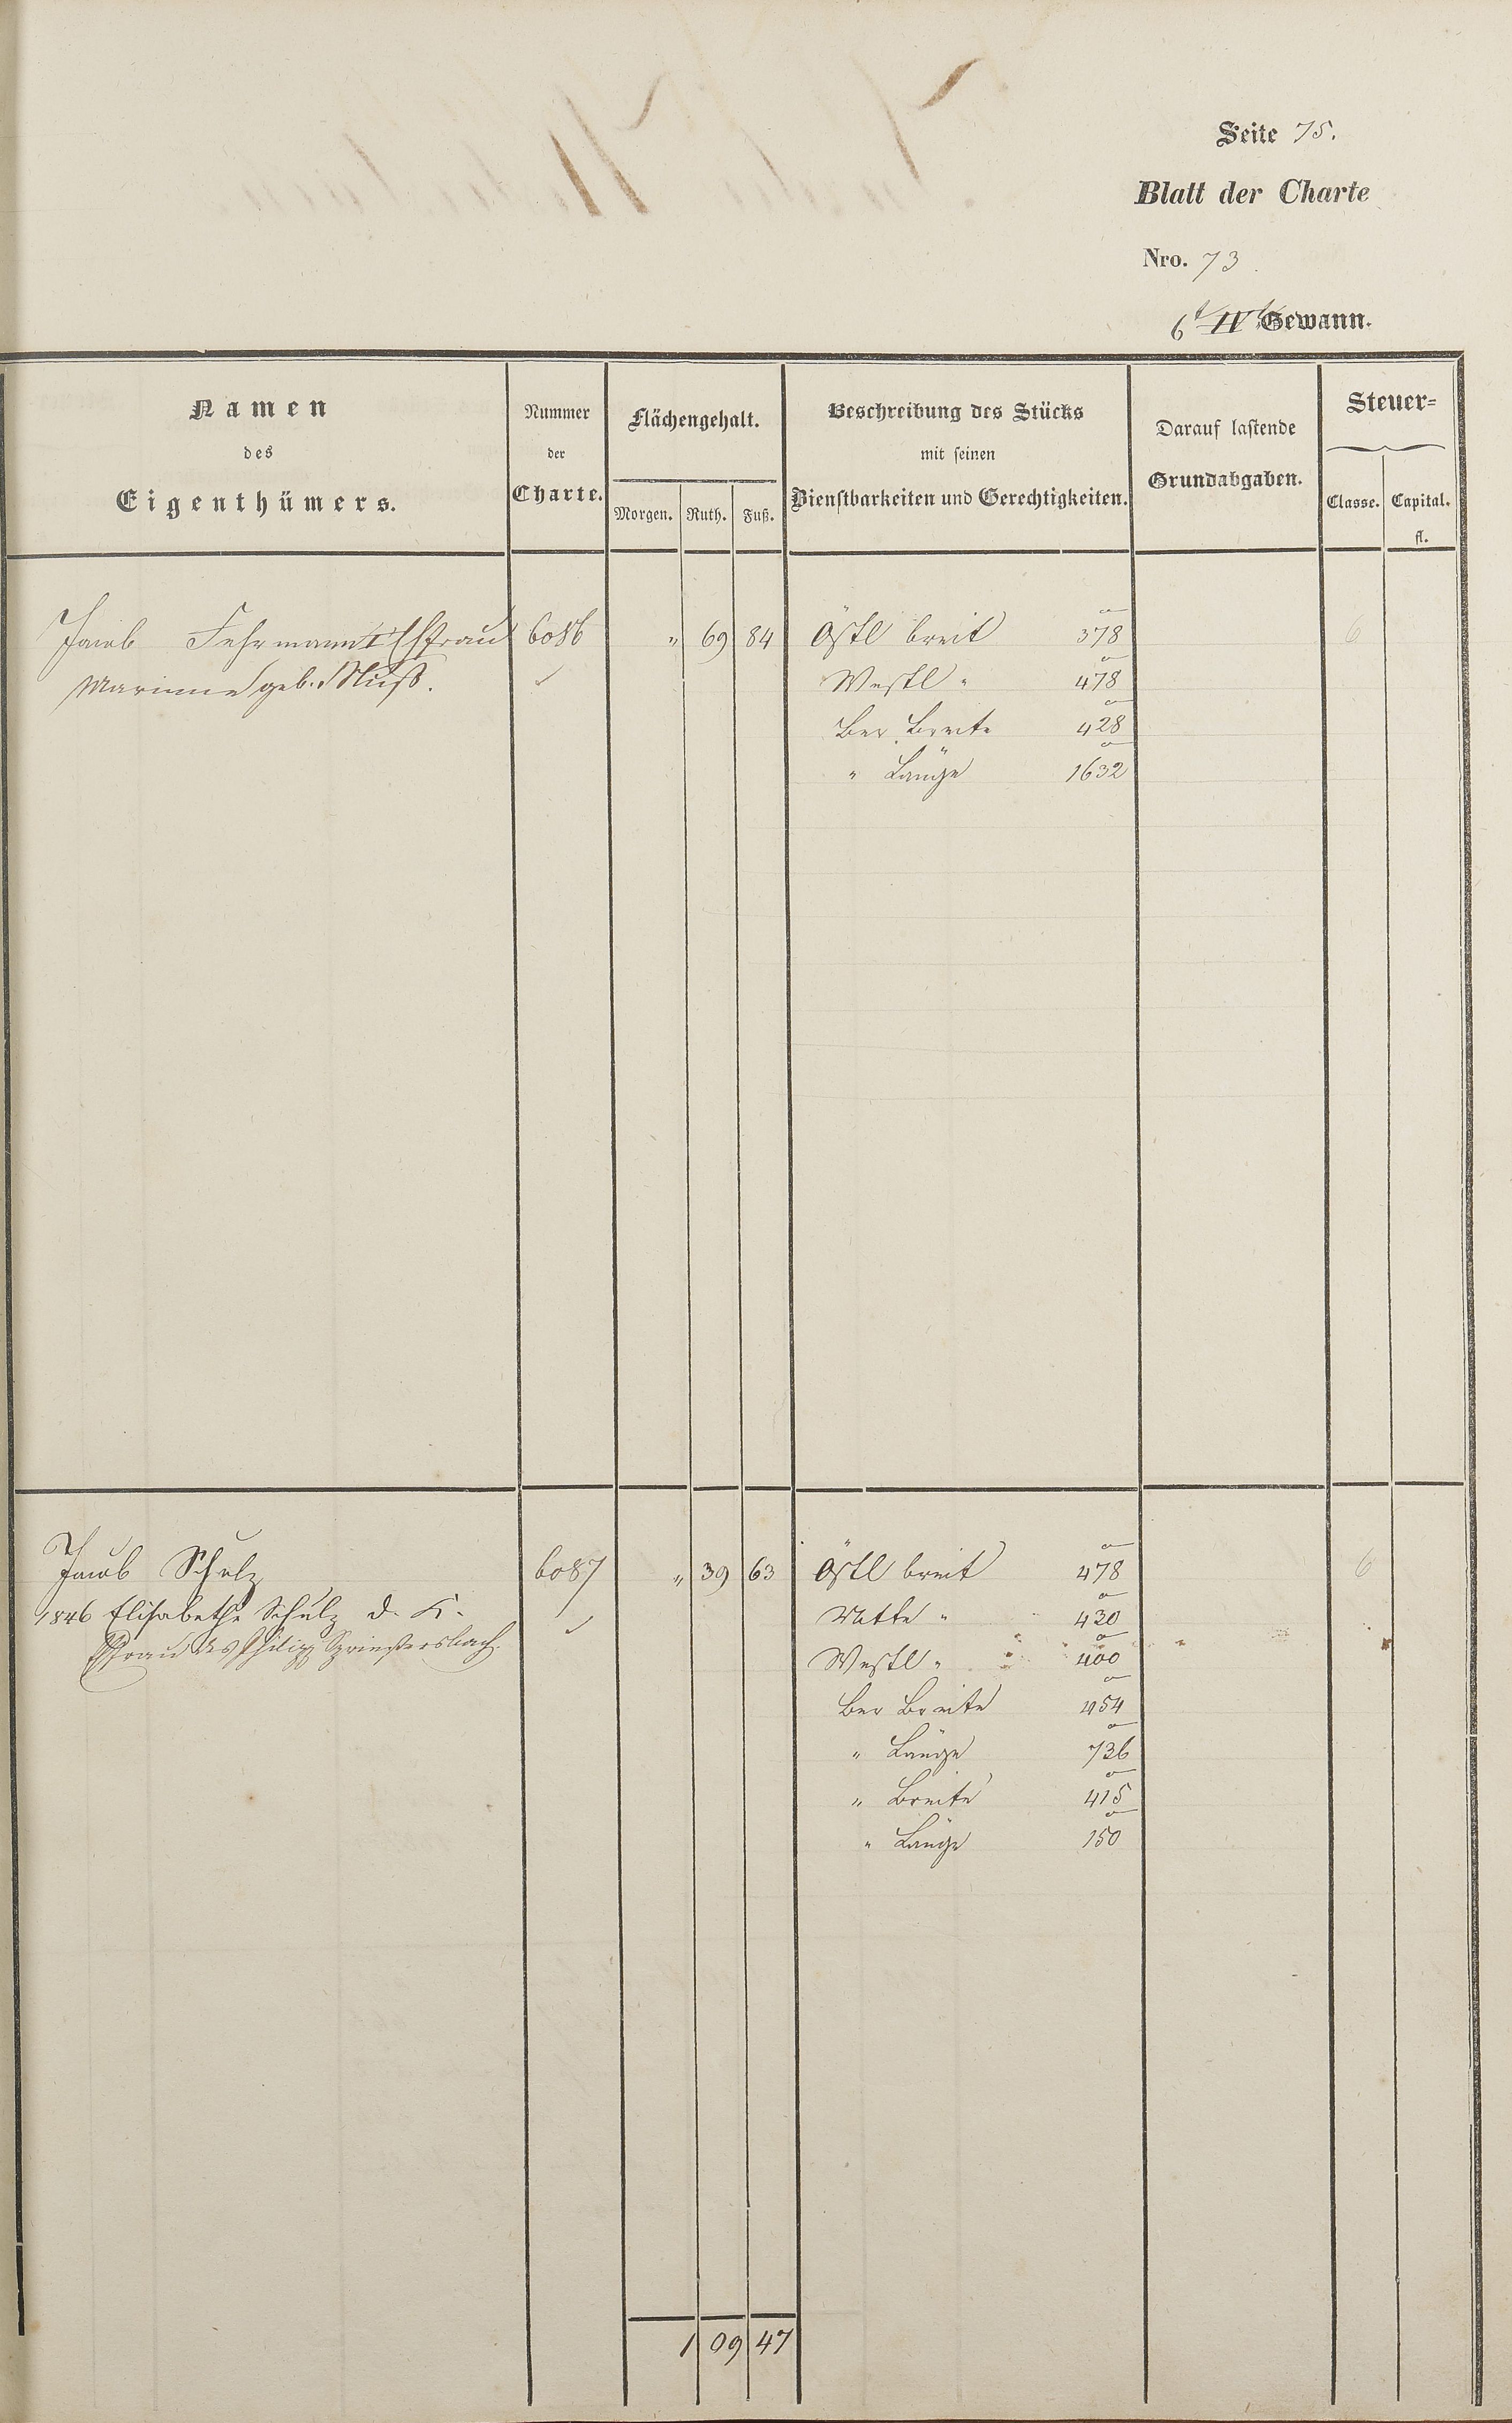 Seite 75.
Blatt der Charte
Nro. 73.
6t IVte Gewann.
Namen
des
Eigenthümers.
Nummer
der
Charte.
Flächengehalt.
Morgen. Ruth. Fuß.
Beschreibung des Stücks
mit seinen
Dienstbarkeiten und Gerechtigkeiten.
Darauf lastende
Grundabgaben.
Steuer=
Classe. Capital.
fl.
Jacob Fehrmann Ehfrau 6086 " 69 84 Östl breit 378 6
geb. Nuß. Westl " 478
Ber Breite 428
" Länge 1632
Jacob Schulz 6087 " 39 63 Östl breit 478 6
1846 Elisabethe Schulz d. K. Mitte " 430
Ehfrau des Philipp Westl " 400
Ber Breite 454
" Länge 736
" Breite 415
" Länge 150
1 09 47